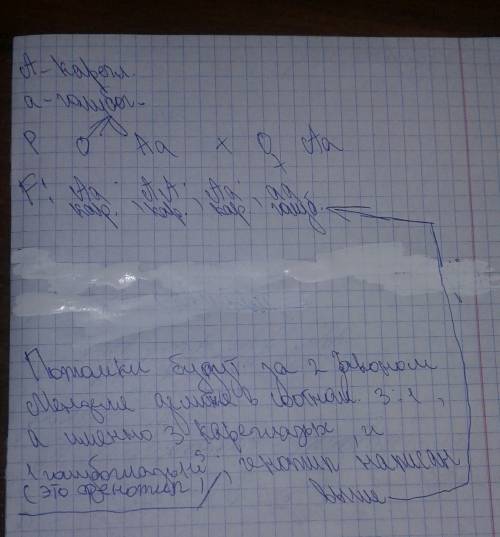 А - карегл.
а - голубог.
P ♂ Aa x ♀ Aa
F1: Aa кар., AA кар., Aa кар., aa голуб.
Потомки будут за 2 законом
Менделя в соотнош. 3:1,
а именно 3 кареглазых, и
1 голубоглазый ; генотип написан
(это фенотип) выше